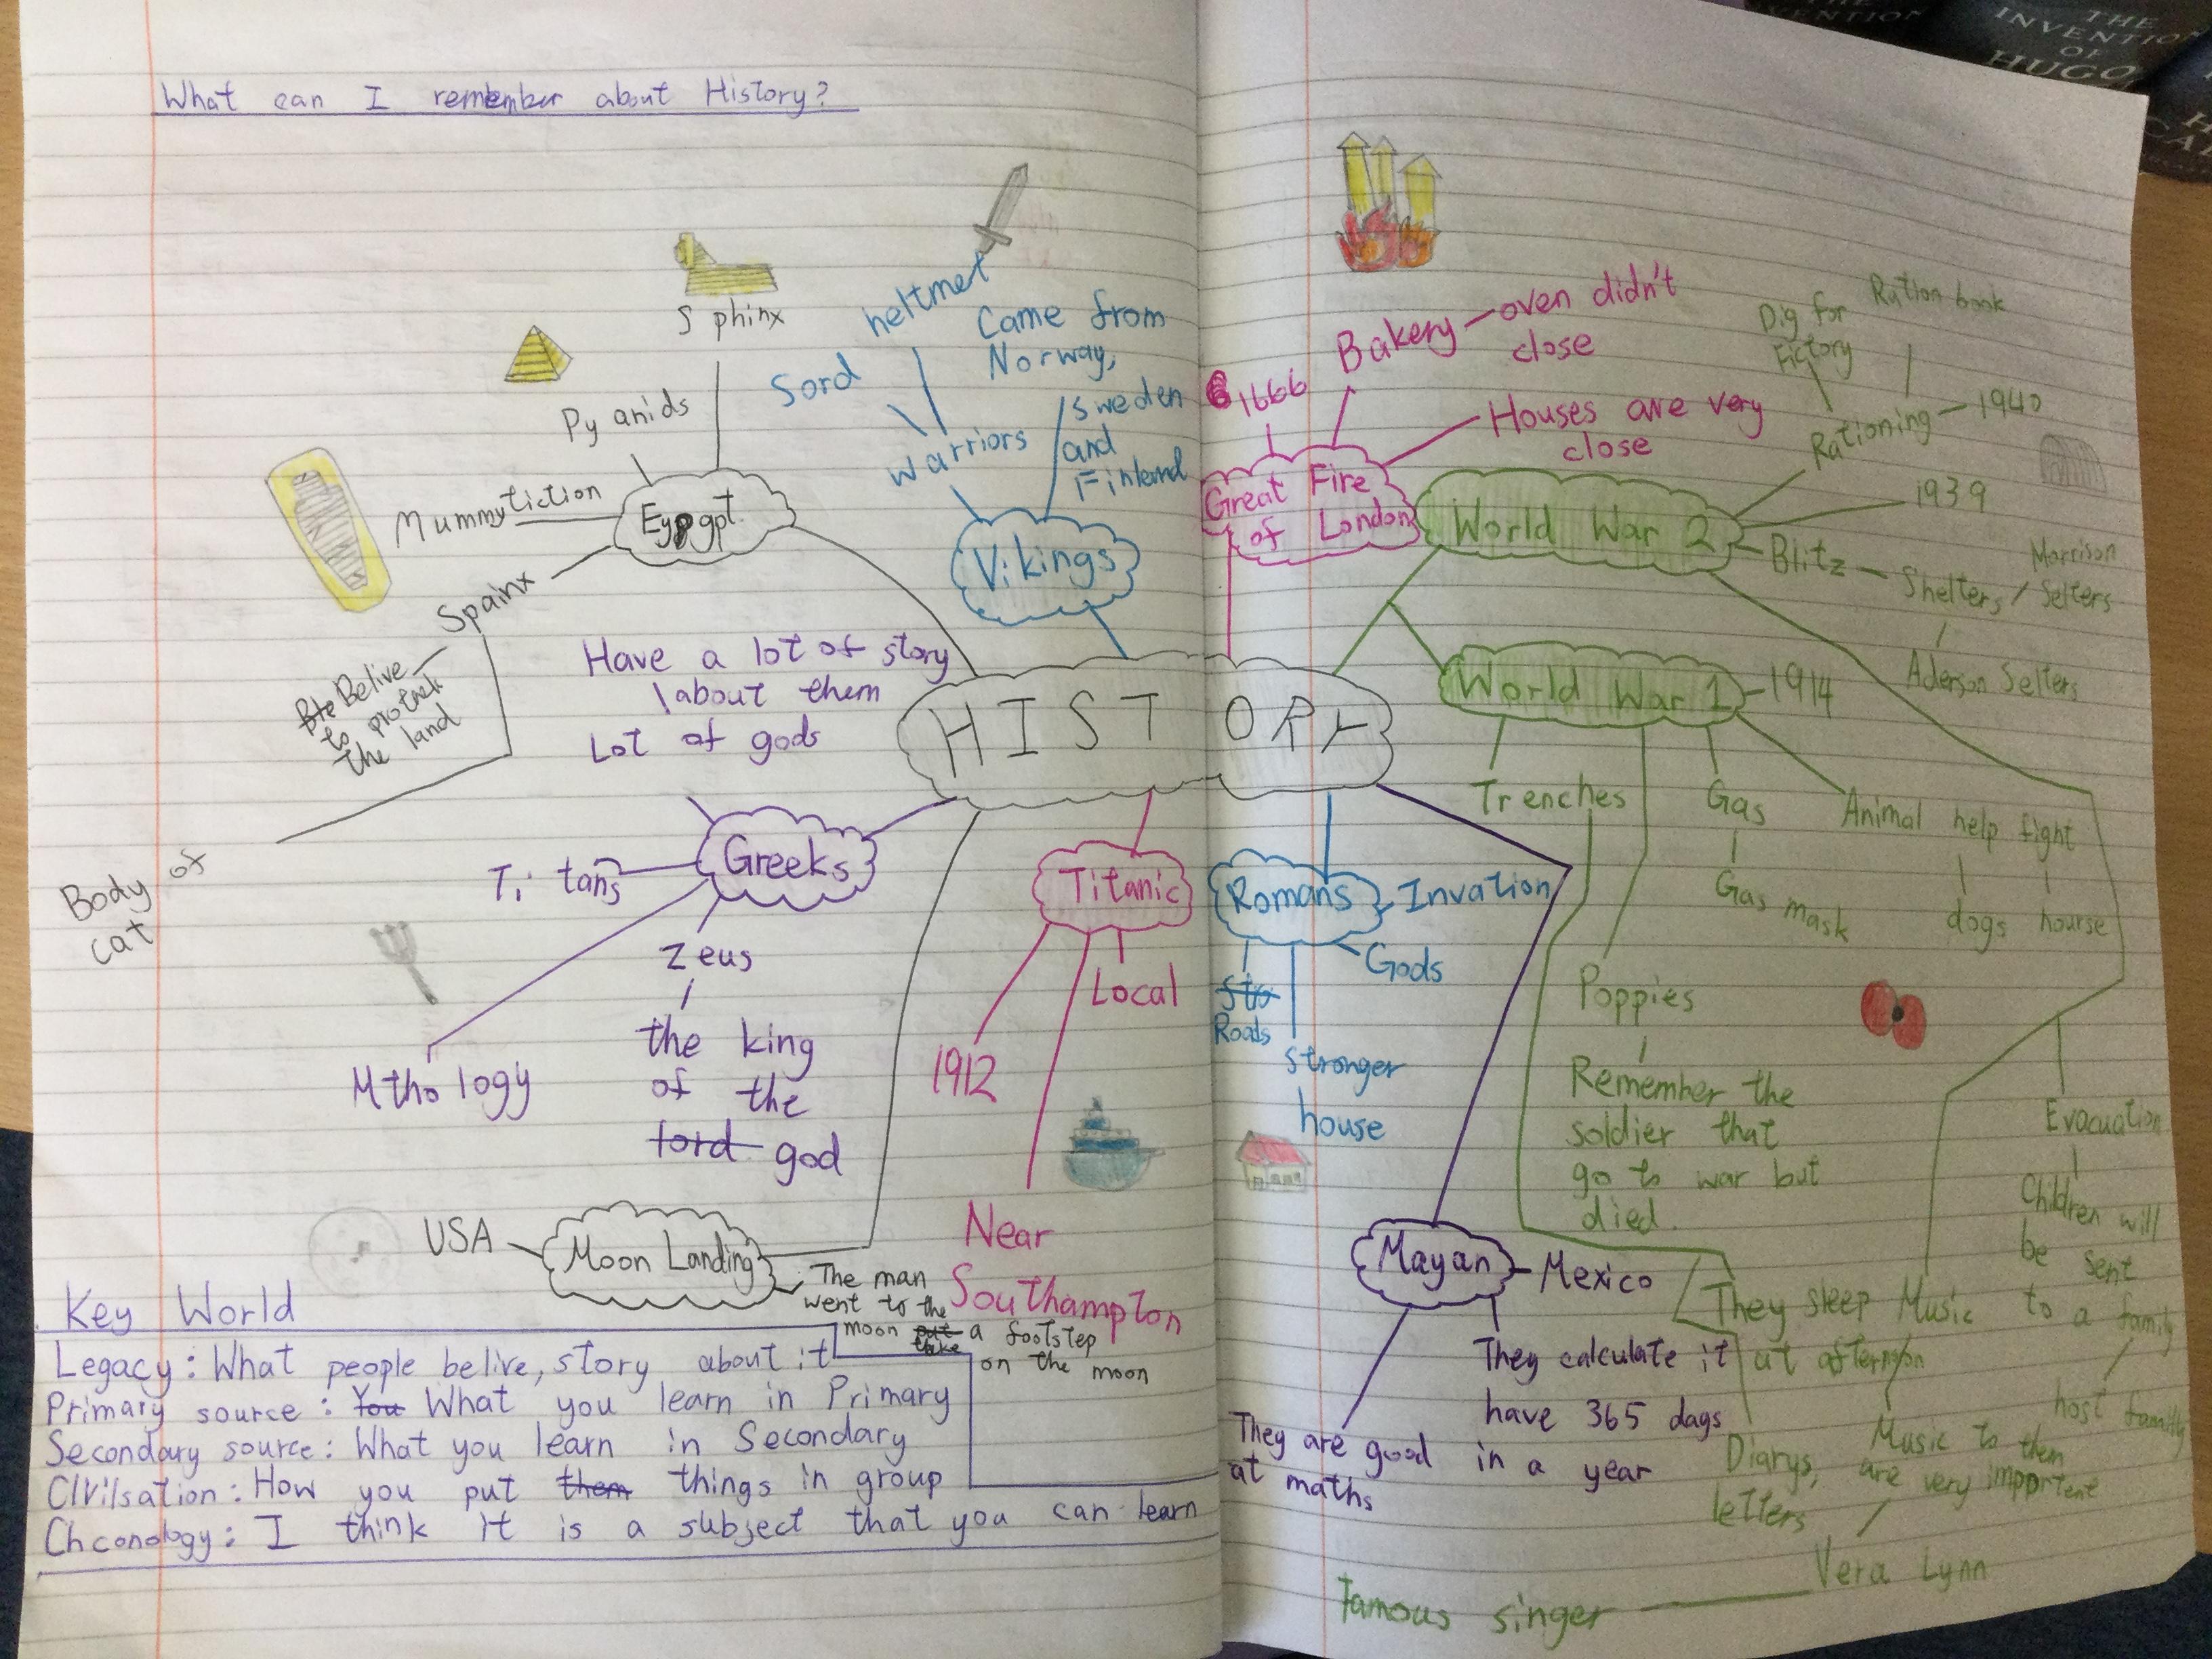 What can I remember about History?
THE
INVENTION
OF
HUGO
HISTORY
Eypgpt
Sphinx
Pyanids
Mummytiction
Spainx
Belive
to protnek
the land
Body of
cat
Vikings
warriors
Sord
heltmet
Came from
Norway,
Sweden
and
Finland
Great Fire
of London
1666
Bakery
oven didn't
close
Houses are very
close
World War 2
Rationing
Dig for
Fictory
Ration book
1940
1939
Blitz
Shelters
Morrison
Selters
Aderson Selters
Evacuation
Children will
be sent
to a family
host familly
Music
Music to them
are very important
Vera Lynn
Famous singer
World War 1
1914
Trenches
They sleep
at afternon
Diarys,
letters
Poppies
Remember the
soldier that
go to war but
died.
Gas
Gas mask
Animal help fight
dogs
hourse
Greeks
Have a lot of story
about them
Lot of gods
Titans
Zeus
the king
of the
lord god
Mtho logy
Titanic
1912
Local
Near
Southampton
Romans
Invation
Gods
sto
Roads
stronger
house
Mayan
Mexico
They calculate it
have 365 days
in a year
They are good
at maths
Moon Landing
USA
The man
went to the
moon put a footstep
take on the moon
Key World
Legacy: What people belive, story about it
Primary source: You What you learn in Primary
Secondary source: What you learn in Secondary
CIvilsation: How you put them things in group
Chconology: I think it is a subject that you can learn